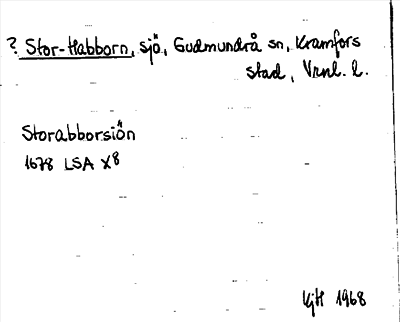 ? Stor-Habborn, sjö, Gudmundrå sn, Kramfors
stad, Vrnl. l.
Storabborsiön
1678 LSA X8
KjH 1968